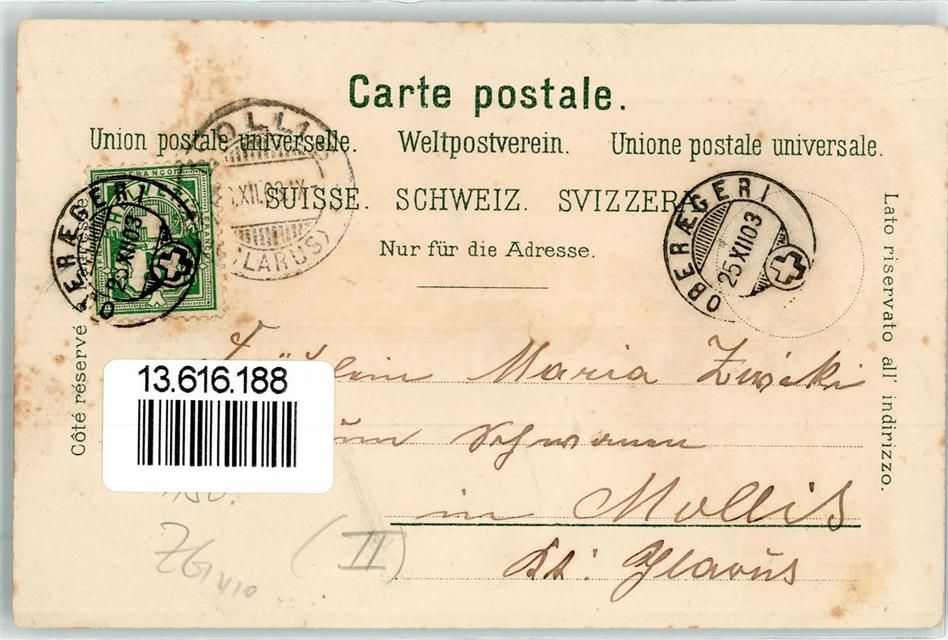 Carte postale.
Union postale universelle. Weltpostverein. Unione postale universale.
SUISSE. SCHWEIZ. SVIZZERA
Nur für die Adresse.
Côté réservé
Lato riservato all' indirizzo.
FRANCO
OBERÆGERI
25 XII 03
MOLLIS
(GLARUS)
OBERÆGERI
25 XII 03
Fräulein Maria Zwicki
zum Schwanen
in Mollis
Kt: Glarus
13.616.188
(II)